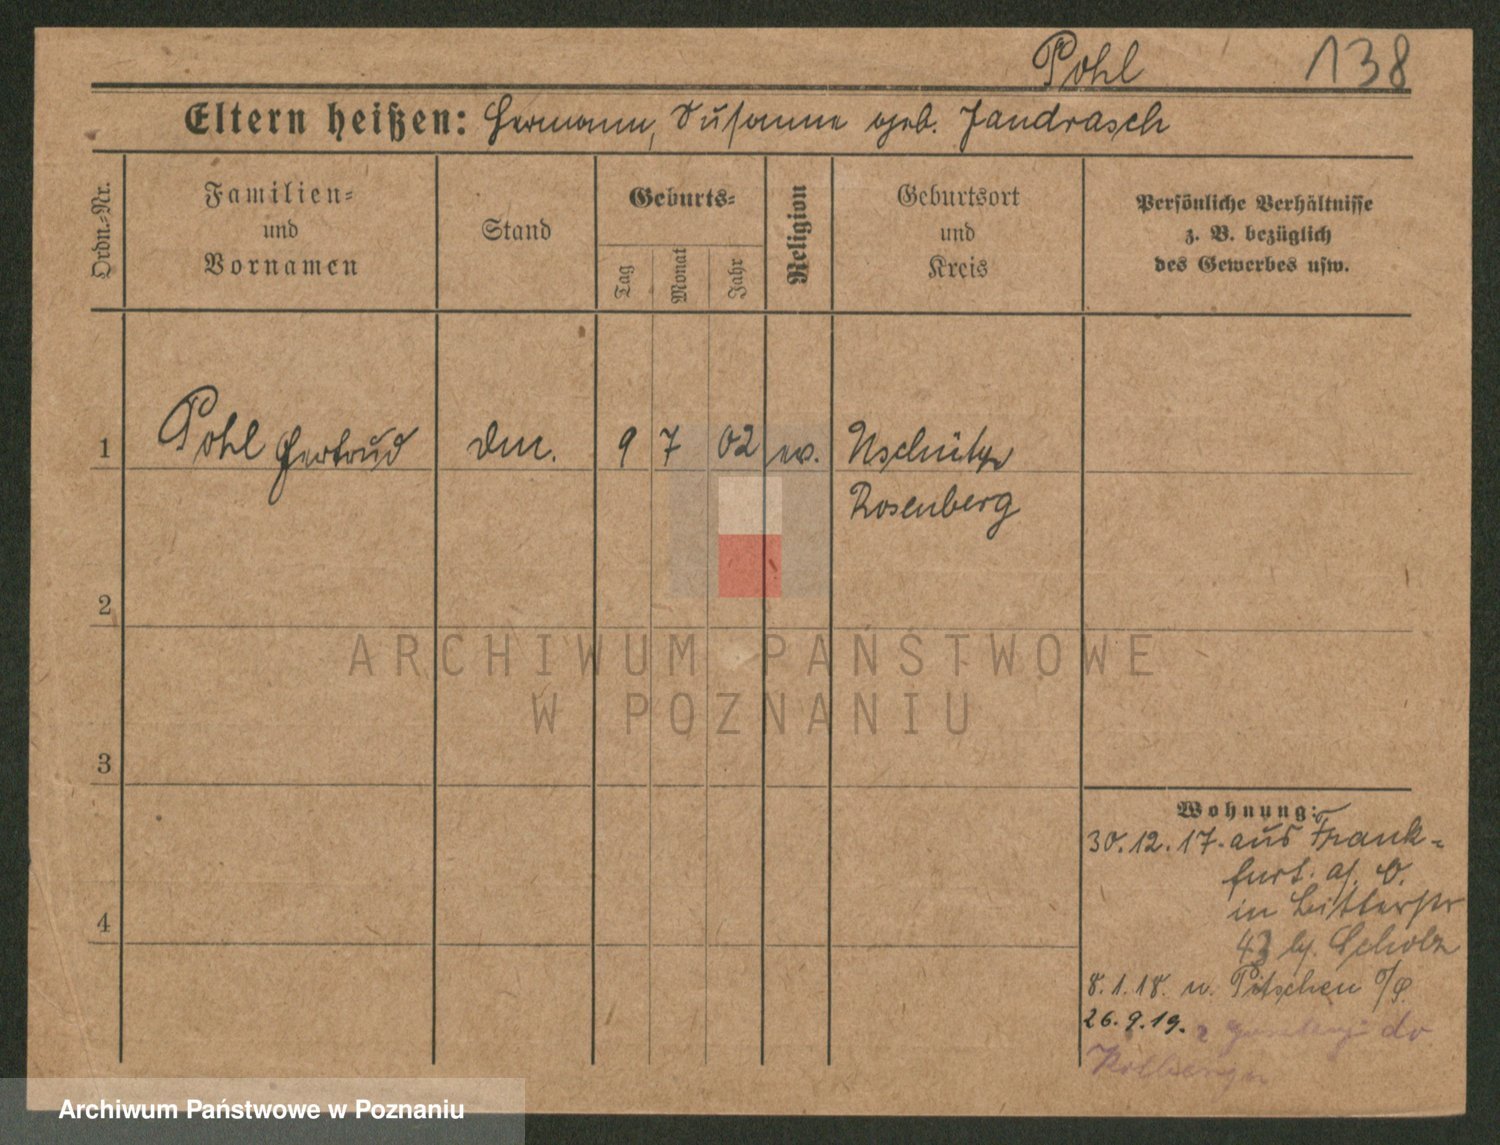 Pohl 138
Eltern heißen: Hermann, Susanne geb. Jandrasch
Ordn.=Nr.
Familien=
und
Vornamen
Stand
Geburts=
Tag
Monat
Jahr
Religion
Geburtsort
und
Kreis
Persönliche Verhältnisse
z. B. bezüglich
des Gewerbes usw.
1 Pohl Gertrud 9 7 02 ev. Uschütz
Rosenberg
2
ARCHIWUM PAŃSTWOWE
W POZNANIU
3
Wohnung:
30.12.17. aus Frank-
furt. a/. O.
in Bitterstr
43 b/. Scholz
8.1.18. n. Pitschen O/S.
26.9.19. z do
4
Archiwum Państwowe w Poznaniu